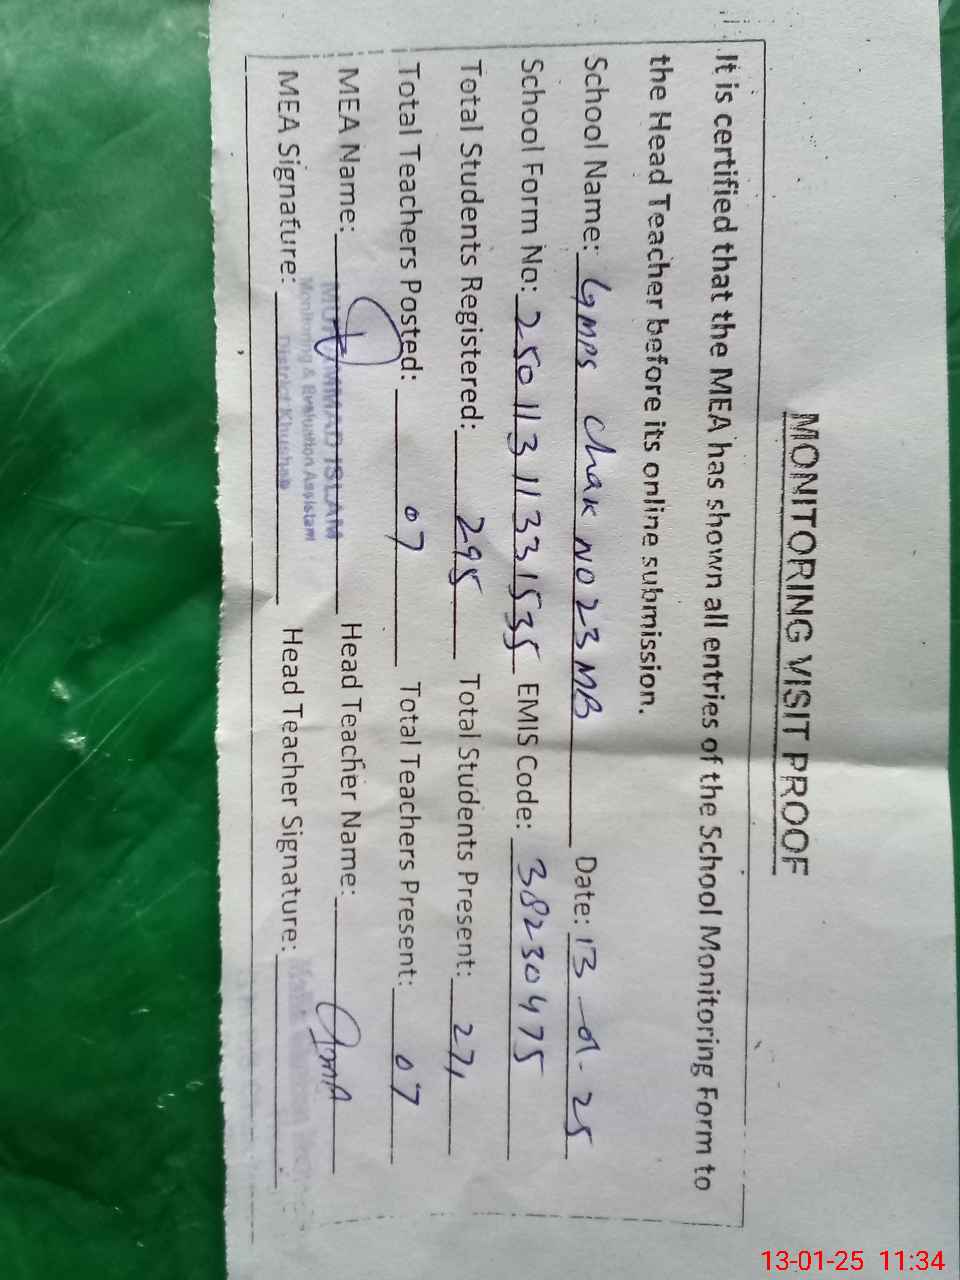 MONITORING VISIT PROOF
It is certified that the MEA has shown all entries of the School Monitoring Form to
the Head Teacher before its online submission.
School Name: GMPS Chak NO 23 MB Date: 13-01-25
School Form No: 2501131133 1535 EMIS Code: 38230475
Total Students Registered: 295 Total Students Present: 271
Total Teachers Posted: 07 Total Teachers Present: 07
MEA Name: MUHAMMAD ISLAM Head Teacher Name:
Monitoring & Evaluation Assistant
MEA Signature: District Khushab Head Teacher Signature:
13-01-25 11:34